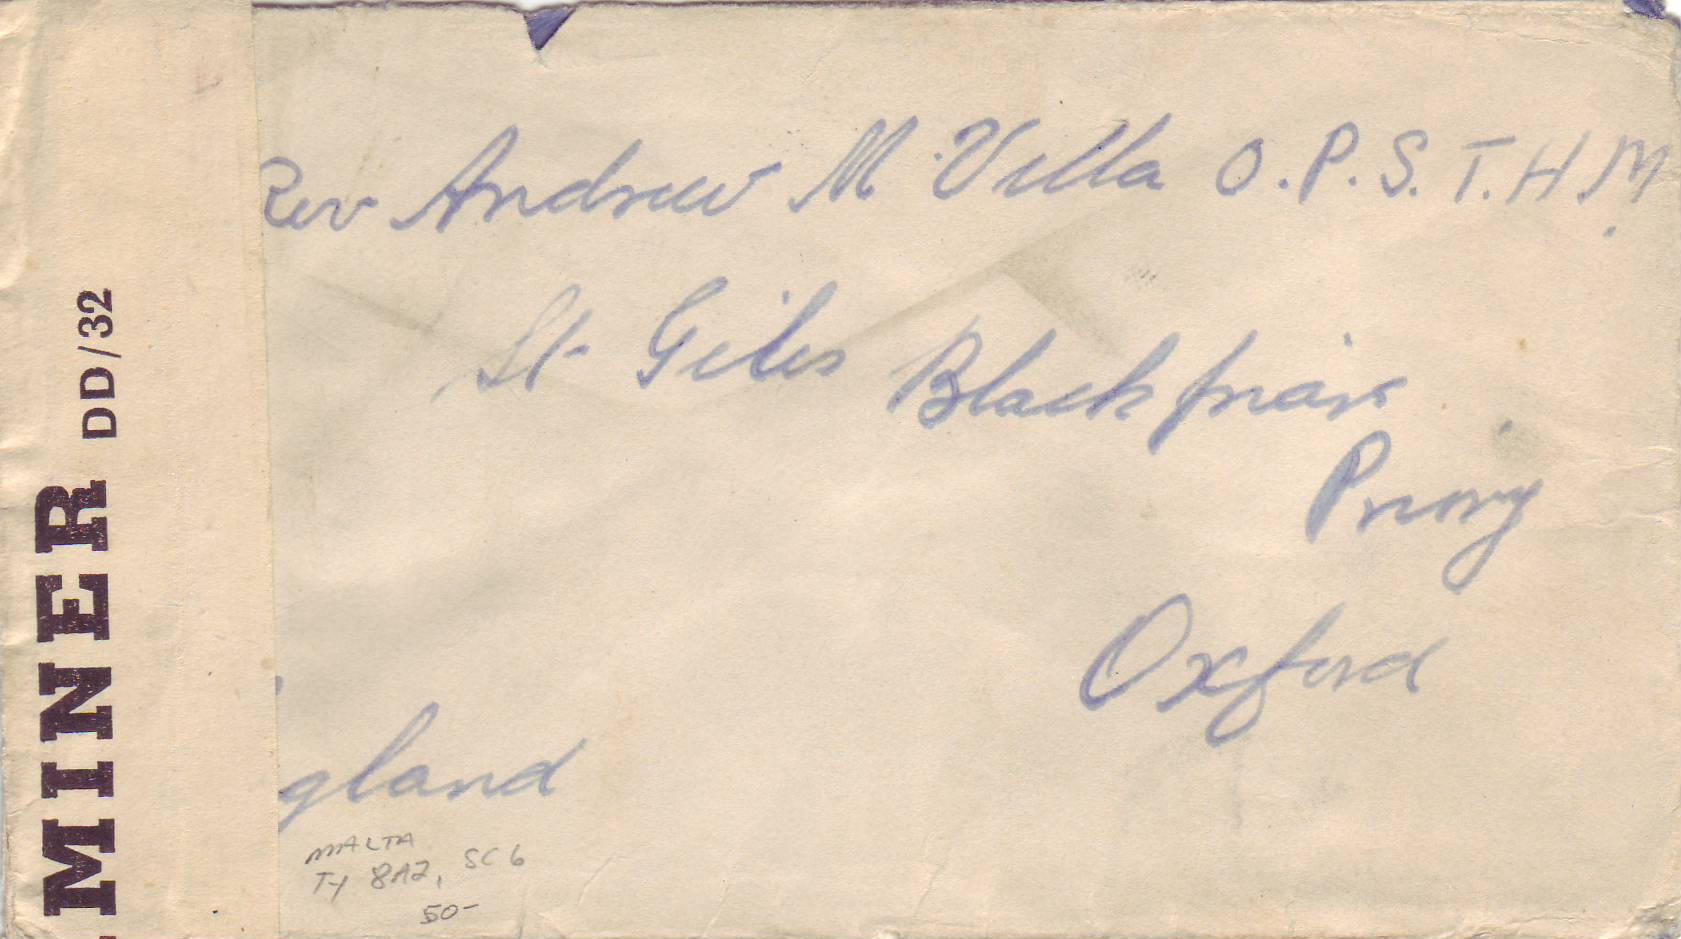 MINER DD/32
Rev Andrew M. Villa O.P.S.T.H.M.
St Giles Blackfriars
Priory
Oxford
gland
MALTA
TY 8A2, SC6
50-